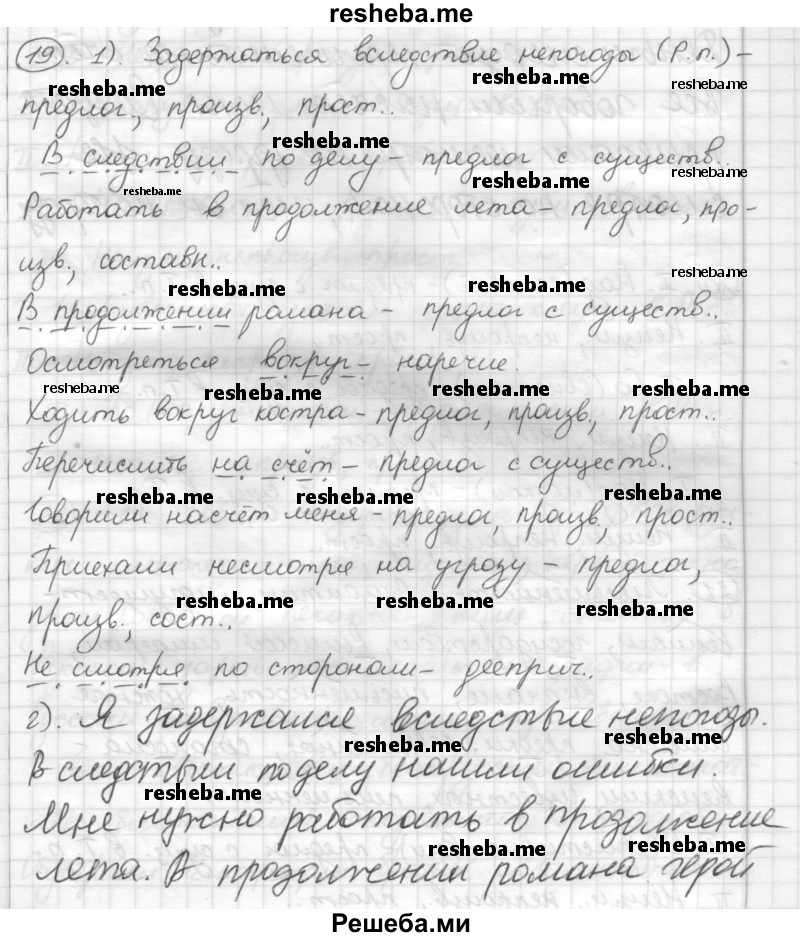 resheba.me
19. 1). Задержаться вследствие непогоды (Р.п.) –
resheba.me resheba.me resheba.me
предлог, произв, прост..
resheba.me
В следствии по делу – предлог с существ..
resheba.me resheba.me resheba.me
Работать в продолжение лета – предлог, про-
изв, составн..
resheba.me resheba.me resheba.me
В продолжении романа – предлог с существ..
Осмотреться вокруг – наречие.
resheba.me resheba.me resheba.me resheba.me
Ходить вокруг костра – предлог, произв, прост..
Перечислить на счёт – предлог с существ..
resheba.me resheba.me resheba.me
Говорили насчёт меня – предлог, произв. прост..
Приехали несмотря на угрозу – предлог,
resheba.me resheba.me resheba.me
произв., сост..
Не смотря по сторонам – дееприч..
2). Я задержался вследствие непогоды.
resheba.me resheba.me
В следствии по делу нашли ошибки.
resheba.me
Мне нужно работать в продолжение
resheba.me resheba.me
лета. В продолжении романа герой
Решеба.ми